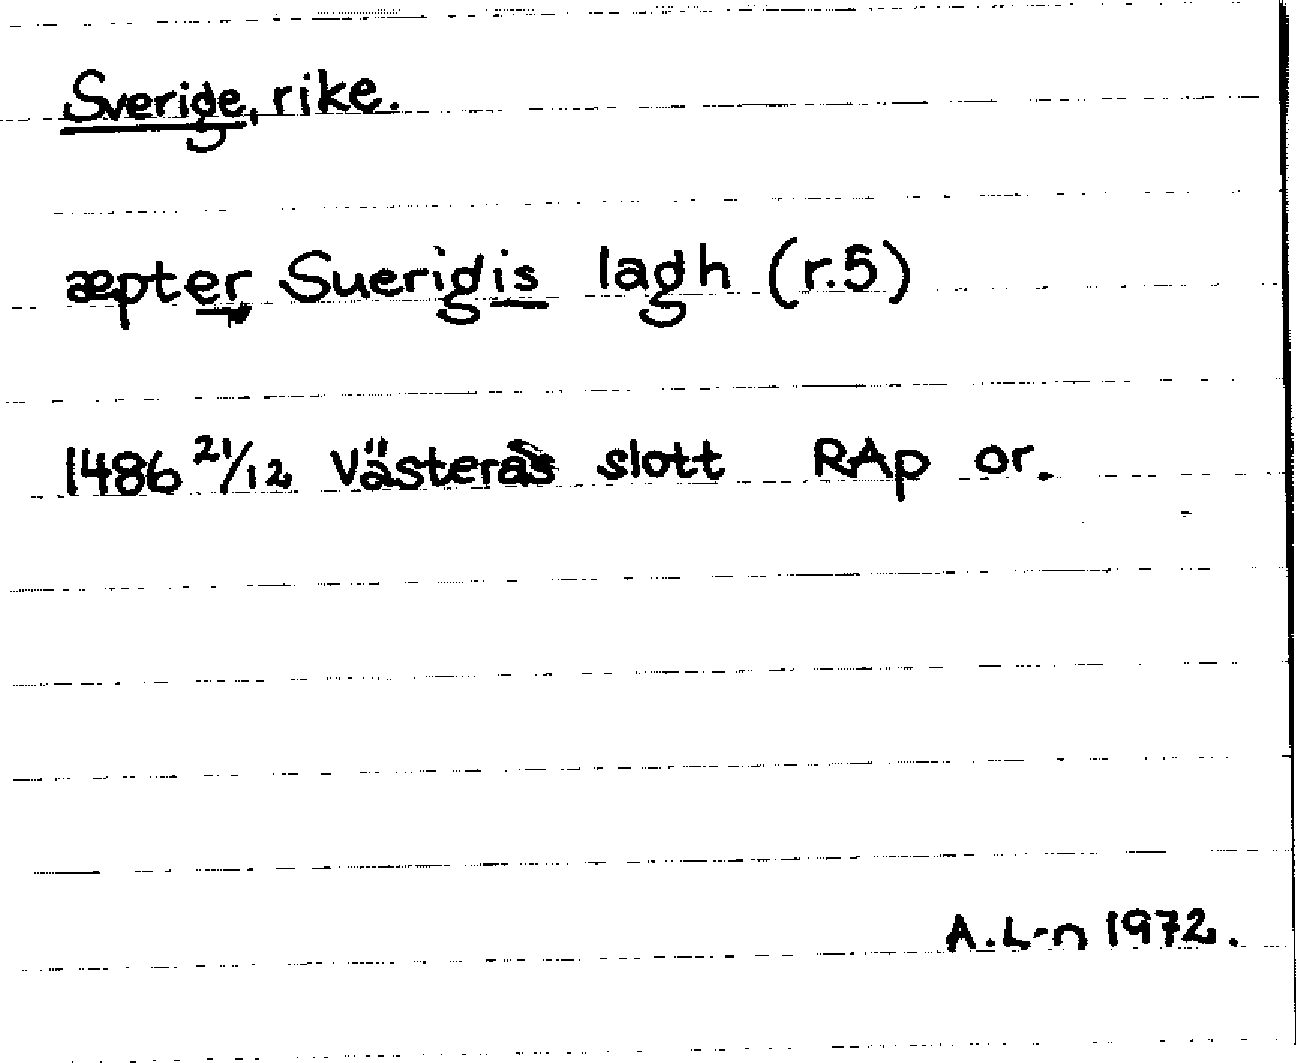 Sverige, rike.
æpter Suerigis lagh (r.5)
1486 21/12 Västerås slott RAp or.
A.L-n 1972.